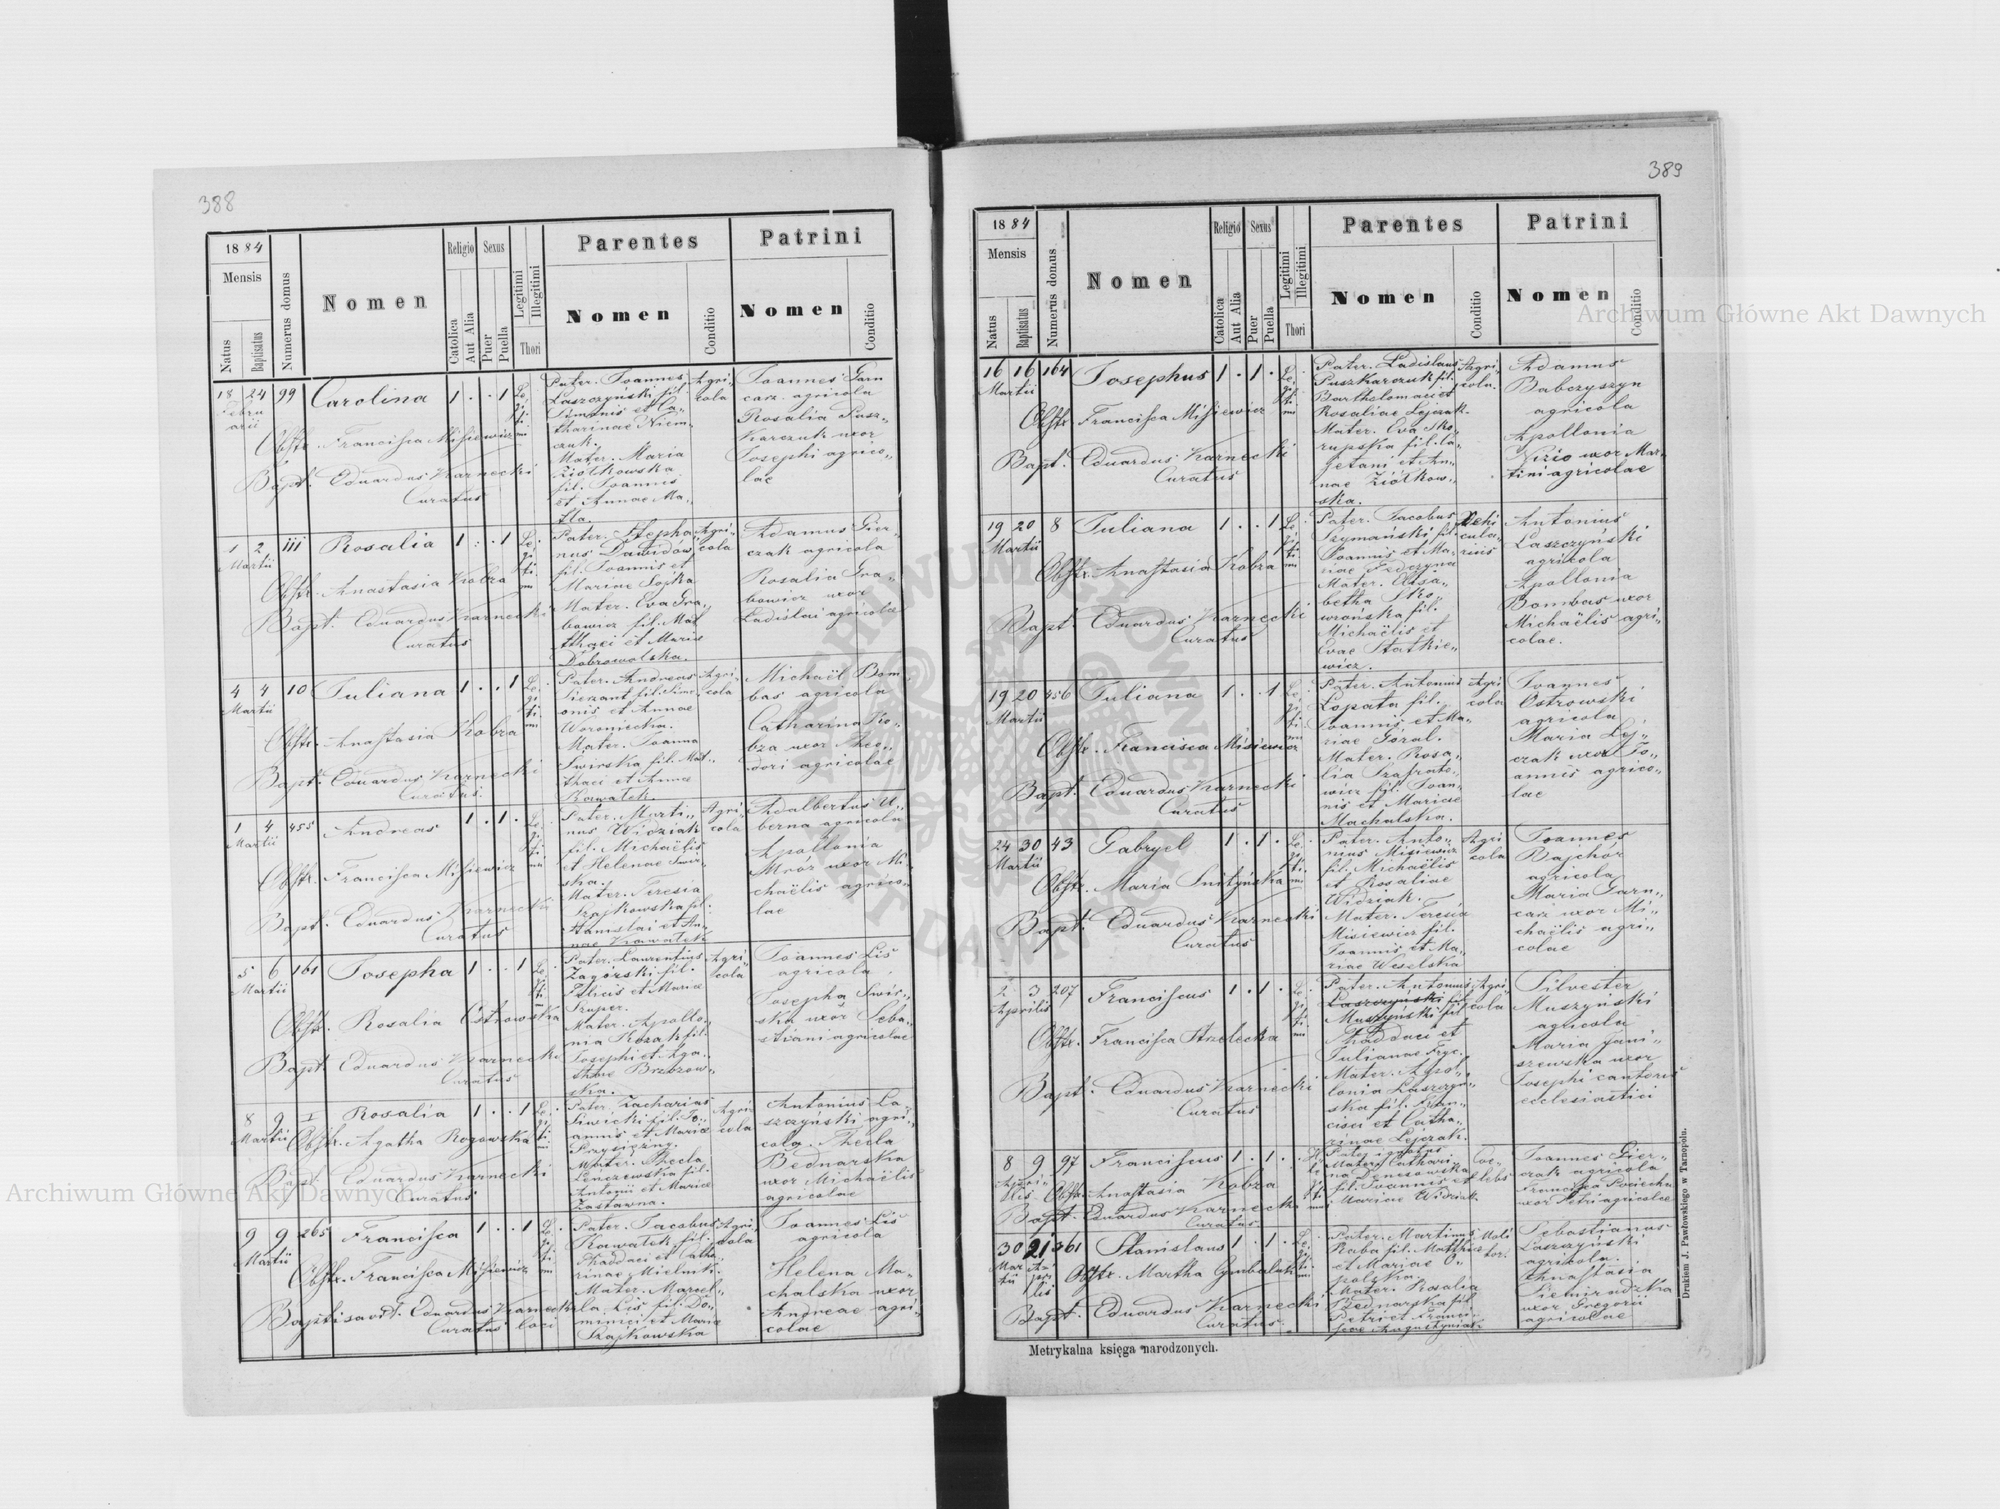 388
1884
Mensis
Natus
Baptisatus
Numerus domus
Nomen
Religio
Catolica
Aut Alia
Sexus
Puer
Puella
Legitimi
Illegitimi
Thori
Parentes
Nomen
Conditio
Patrini
Nomen
Conditio
18 24 99 Carolina 1 . . 1
Febru
arii
Obstr. Francisca Misiewicz
Bapt. Eduardus Karnecki
Curatus
Pater. Joannes
Laszczyński fil.
Simonis et Ca„
tharinae Niem„
czuk.
Mater. Maria
Ziółkowska
fil. Joannis
et Annae Ma„
Agri„
cola
Joannes Garn
carz agricola
Rosalia Pusz„
karczuk uxor
Josephi agrico„
lae
1 2 111 Rosalia 1 . . 1
Martii
Obstr. Anastasia Kobza
Bapt. Eduardus Karnecki
Curatus
Pater. Stepha„
nus Dawidów
fil. Joannis et
Mariae Sojka
Mater. Eva Gra„
bowicz fil. Mat
thaei et Maria
Dobrowolska.
Agri„
cola
Adamus Gier„
czak agricola
Rosalia Gra„
bowicz uxor
Ladislai agricola
4 4 10 Juliana 1 . . 1
Martii
Obstr. Anastasia Kobza
Bapt. Eduardus Karnecki
Curatus.
Pater. Andreas
fil. Sime„
onis et Annae
Woroniecka.
Mater. Joanna
Swirska fil. Mat„
thaei et Annae
Kawałek.
Agri„
cola
Michaël Bom„
bas agricola
Catharina Ko„
bza uxor Theo„
dori agricolae
1 4 455 Andreas 1 . 1 .
Martii
Obstr. Francisca Misiewicz
Bapt. Eduardus Karnecki
Curatus
Pater. Marti„
nus Widziak
fil. Michaëlis
et Helenae Swir„
ska.
Mater. Teresia
Szajkowska fil.
Stanislai et An„
nae Kawałek
Agri„
cola
Adalbertus U„
berna agricola
Apollonia
Mróz uxor Mi„
chaëlis agrico„
lae
5 6 161 Josepha 1 . . 1
Martii
Obstr. Rosalia Ostrowska
Bapt. Eduardus Karnecki
Curatus
Pater. Laurentius
Zagórski fil.
Felicis et Mariae
Szuper.
Mater. Apollo„
nia Kozak fil.
Josephi et Aga„
thae Brzozow„
ska.
Agri„
cola
Joannes Lis
agricola
Josepha Swir„
ska uxor Seba„
stiani agricolae
8 9 1 Rosalia 1 . . 1
Martii
Obstr. Agatha Rogowska
Bapt. Eduardus Karnecki
Curatus
Pater. Zacharias
Siwicki fil. Jo„
annis et Mariae
Przysiężny.
Mater. Thecla
Lenczewska fil.
Antonii et Mariae
Zastawna.
Agri„
cola
Antonius La„
szczyński agri„
cola. Thecla
Bednarska
uxor Michaëlis
agricolae
9 9 265 Francisca 1 . . 1
Martii
Obstr. Francisca Misiewicz
Baptisavit. Eduardus Karnecki
Curatus loci
Pater. Jacobus
Kawałek fil.
Thaddaei et Catha„
rinae Mielnik.
Mater. Marcel„
la Lis fil. Do„
minici et Maria
Szajkowska
Agri„
cola
Joannes Lis
agricola
Helena Ma„
chalska uxor
Andreae agri„
colae
389
1884
Mensis
Natus
Baptisatus
Numerus domus
Nomen
Religio
Catolica
Aut Alia
Sexus
Puer
Puella
Legitimi
Illegitimi
Thori
Parentes
Nomen
Conditio
Patrini
Nomen
Conditio
16 16 164 Josephus 1 . 1 .
Martii
Obstr. Francisca Misiewicz
Bapt. Eduardus Karnecki
Curatus
Pater. Ladislaus
Puszkarczuk fil.
Bartholomaei et
Rosaliae Lejczak.
Mater. Eva Sko„
rupska fil. Ca„
jetani et An„
nae Ziółkow„
ska.
Agri„
cola.
Adamus
Babczyszyn
agricola
Apollonia
Nizio uxor Mar„
tini agricolae
19 20 8 Juliana 1 . . 1
Martii
Obstr. Anastasia Kobza
Bapt. Eduardus Karnecki
Curatus
Pater. Jacobus
Szymański fil.
Joannis et Ma„
riae Fedczyna
Mater. Elisa„
betha Sko„
wrońska fil.
Michaëlis et
Evae Statkie„
wicz.
Vehi
cula„
rius
Antonius
Laszczyński
agricola
Apollonia
Bombas uxor
Michaëlis agri„
colae.
19 20 456 Juliana 1 . . 1
Martii
Obstr. Francisca Misiewicz
Bapt. Eduardus Karnecki
Curatus
Pater. Antonius
Łopata fil.
Joannis et Ma„
riae Góral.
Mater. Rosa„
lia Szafrato„
wicz fil. Joan„
nis et Mariae
Machalska.
Agri
cola
Joannes
Ostrowski
agricola
Maria Lej„
czak uxor Jo„
annis agrico„
lae
24 30 43 Gabryel 1 . 1 .
Martii
Obstr. Maria Snityńska
Bapt. Eduardus Karnecki
Curatus
Pater. Anto„
nius Misiewicz
fil. Michaëlis
et Rosaliae
Widziak.
Mater. Teresia
Misiewicz fil.
Joannis et Ma„
riae Weselska
Agri
cola
Joannes
Bajchór
agricola
Maria Garn„
carz uxor Mi„
chaëlis agri„
colae
2 3 207 Franciscus 1 . 1 .
Aprilis
Obstr. Francisca Strzelecka
Bapt. Eduardus Karnecki
Curatus
Pater. Antonius
Laszczyński fil.
Muszyński fil.
Thaddaei et
Julianae Fryc.
Mater. Apol„
lonia Laszczyń„
ska fil. Fran„
cisci et Catha„
rinae Lejczak.
Agri„
cola
Silvester
Muszyński
agricola
Maria Jani„
szewska uxor
Josephi cantoris
ecclesiastici
8 9 97 Franciscus 1 . 1 .
Apri„
lis
Obstr. Anastasia Kobza
Bapt. Eduardus Karnecki
Curatus.
Pater ignotus
Mater. Cathari„
na Denesowska
fil. Joannis et
Mariae Widziak
Coe„
lebs
Joannes Gier„
czak agricola
Francisca Pociecha
uxor Petri agricolae
30 21 361 Stanislaus 1 . 1 .
Mar
tii
Ap
ri
lis
Obstr. Martha Cymbaluk
Bapt. Eduardus Karnecki
Curatus.
Pater. Martinus
Raba fil. Matthiae
et Mariae O„
polska.
Mater. Rosalia
Bednarska fil.
Petri et Franci„
scae Augustyniak.
Moli
tor.
Sebastianus
Laszczyński
agricola.
Anastasia
Niemirudzka
uxor Gregorii
agricolae
Metrykalna księga narodzonych.
Drukiem J. Pawłowskiego w Tarnopolu.
Archiwum Główne Akt Dawnych
Archiwum Główne Akt Dawnych